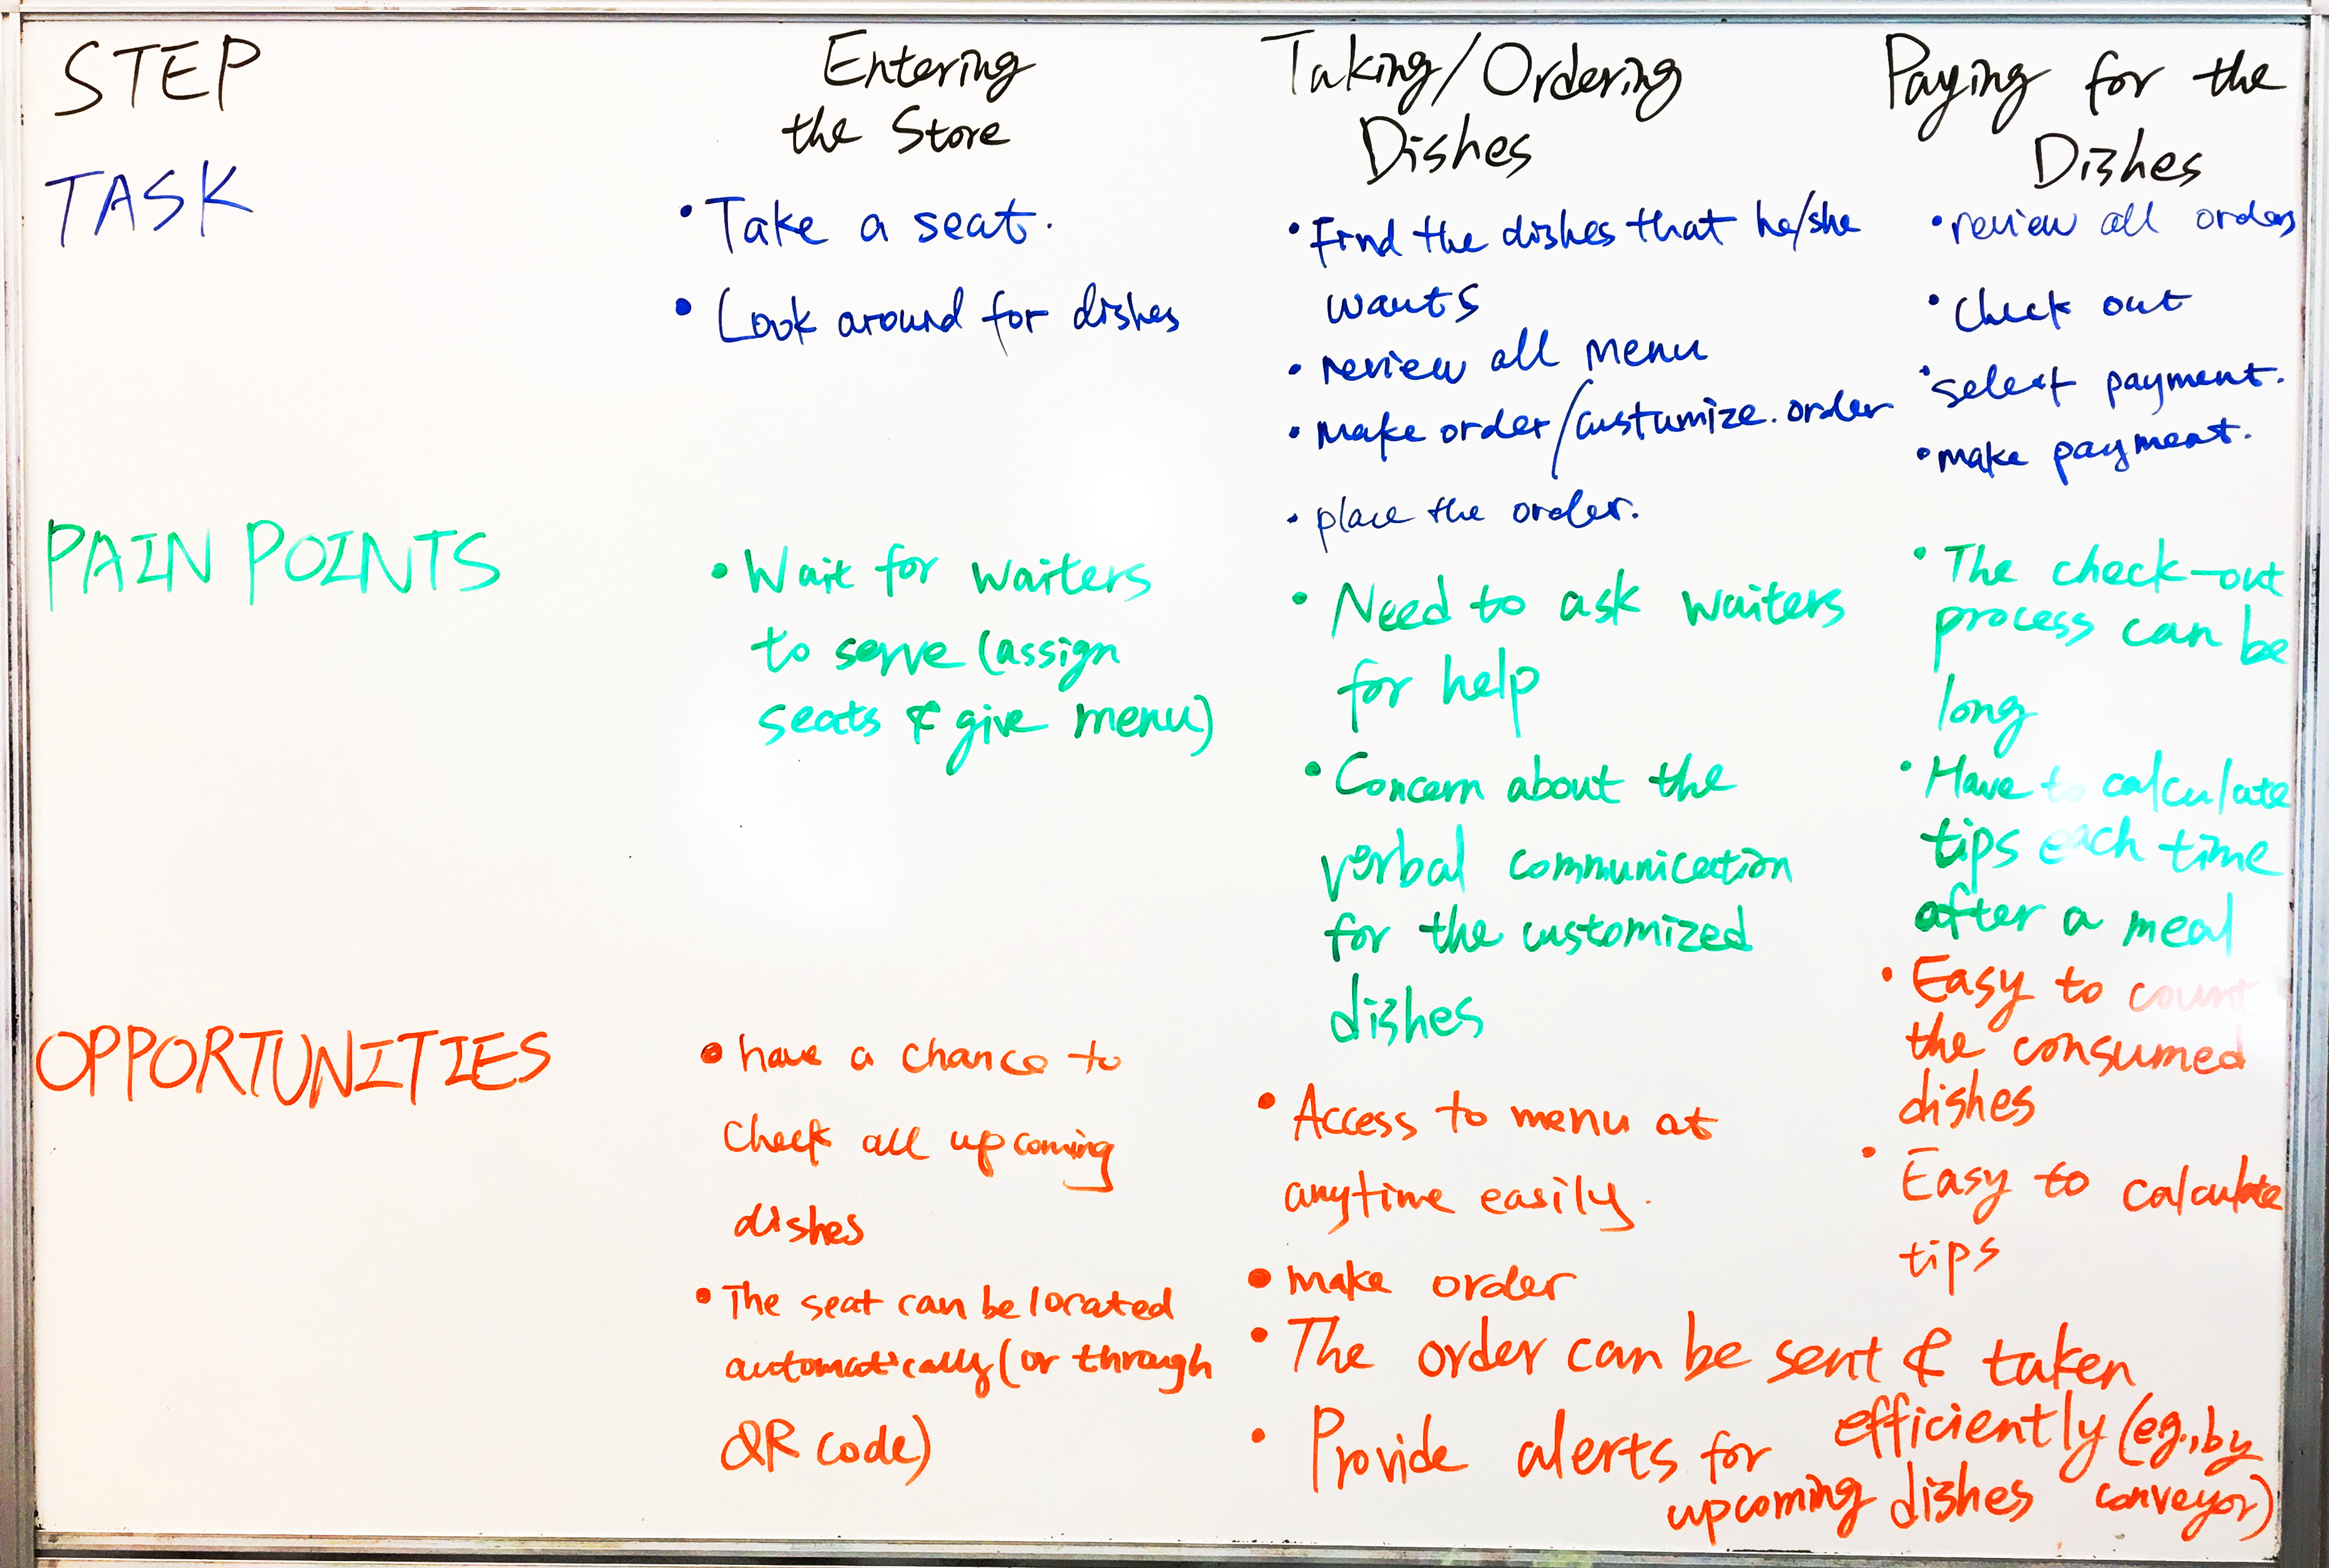 STEP
Entering
the Store
Taking/Ordering
Dishes
Paying for the
Dishes
TASK
• Take a seat.
• Look around for dishes
• Find the dishes that he/she
wants
• review all menu
• Make order/custumize. order
• place the order.
• review all orders
• Check out
• select payment.
• make payment.
PAIN POINTS
• Wait for waiters
to serve (assign
seats & give menu)
• Need to ask waiters
for help
• Concern about the
verbal communication
for the customized
dishes
• The check-out
process can be
long
• Have to calculate
tips each time
after a meal
OPPORTUNITIES
• have a chance to
Check all upcoming
dishes
• The seat can be located
automatically (or through
QR code)
• Access to menu at
anytime easily.
• make order
• The order can be sent & taken
efficiently (eg., by
conveyor)
• Provide alerts for
upcoming dishes
• Easy to count
the consumed
dishes
• Easy to calculate
tips